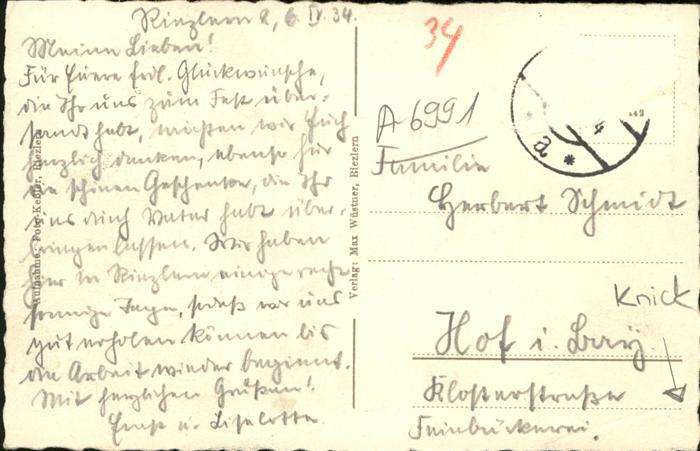 Riezlern 2, 6. IV. 34.
Meine Lieben!
Für Euere frdl. Glückwünsche,
die Ihr uns zum Fest über-
sandt habt, möchten wir Euch
herzlich danken, ebenso für
die schönen Geschenke, die Ihr
uns durch Vater habt über-
bringen lassen. Wir haben
hier in Riezlern einige recht
sonnige Tage, sodaß wir uns
gut erholen können bis
die Arbeit wieder beginnt.
Mit herzlichen Grüßen!
Ernst u. Liselotte
Aufnahme: Foto-Keßler, Riezlern
Verlag: Max Wüstner, Riezlern
34
A 6991
4
a *
Familie
Herbert Schmidt
Knick
Hof i. Bay.
Klosterstraße
Feinbäckerei.